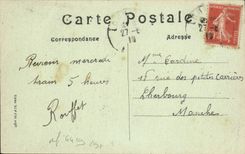 Carte Postale
Correspondance
Adresse
27-
19
27-
19
Revenu mercredi
train 5 heures
Mme Cardine
15 rue des petites Carrières
Cherbourg
Manche